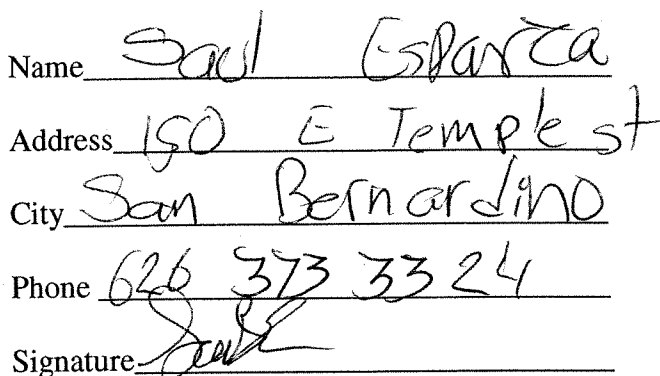 Name Saul Esparza
Address 150 E Temple st
City San Bernardino
Phone 626 373 3324
Signature